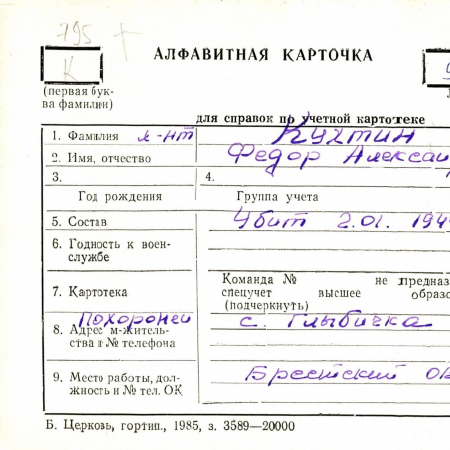 795
К
АЛФАВИТНАЯ КАРТОЧКА
(первая бук-
ва фамилии)
для справок по учетной картотеке
1. Фамилия л-нт Кухтин
2. Имя, отчество Федор Алексан
3.
4.
Год рождения
Группа учета
5. Состав Убит 2.01.194
6. Годность к воен-
службе
7. Картотека
Команда № не предназ
спецучет высшее образо
(подчеркнуть)
Похоронен с. Глыбичка
8. Адрес м-житель-
ства и № телефона
9. Место работы, дол-
жность и № тел. ОК
Брестский ОВ
Б. Церковь, гортип., 1985, з. 3589—20000